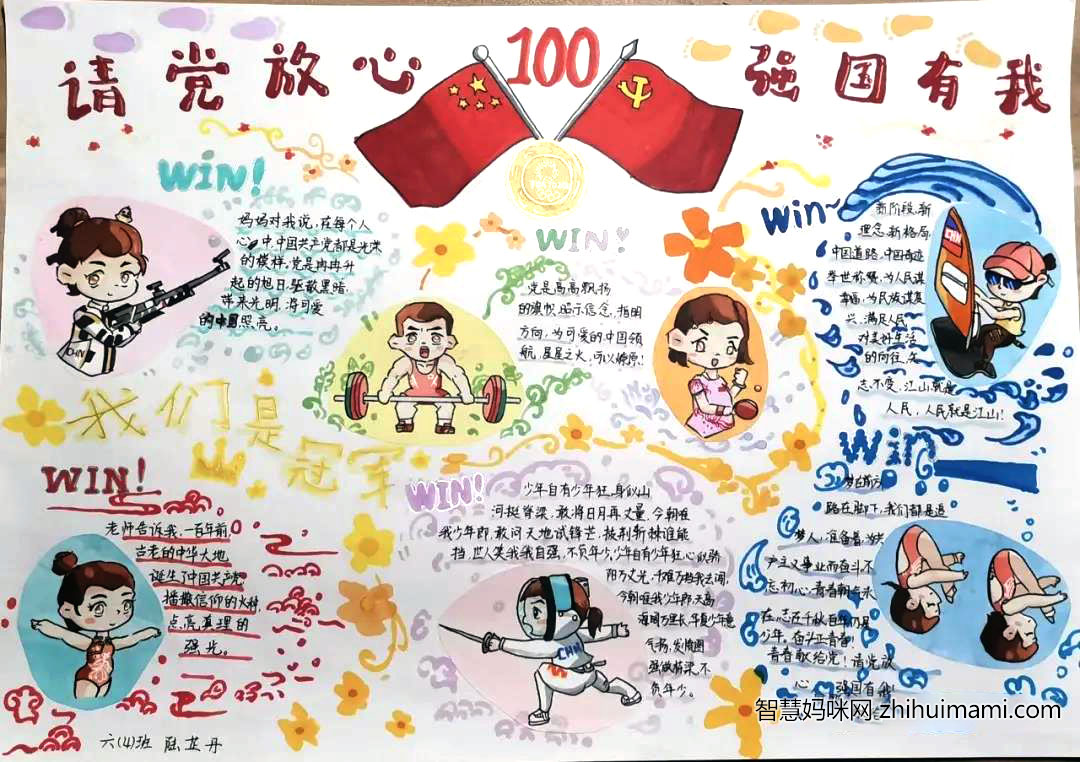 请党放心
100
强国有我
WIN!
妈妈对我说,在每个人
心中,中国共产党都是光荣
的模样。党是冉冉升
起的旭日,驱散黑暗,
带来光明,将可爱
的中国照亮。
CHN
WIN!
党是高高飘扬
的旗帜,昭示信念,指明
方向,为可爱的中国领
航,星星之火,可以燎原!
Win~
新阶段,新
理念,新格局,
中国道路,中国奇迹
举世称赞,为人民谋
幸福,为民族谋复
兴,满足人民
对美好生活
的向往,矢
志不变,江山就是
人民,人民就是江山!
CHN
我们是
冠军
WIN!
老师告诉我,一百年前,
古老的中华大地,
诞生了中国共产党,
播撒信仰的火种,
点亮真理的
强光。
WIN!
少年自有少年狂,身似山
河挺脊梁,敢将日月再丈量,今朝唯
我少年郎,敢问天地试锋芒,披荆斩棘谁能
挡,世人笑我我自强,不负年少,少年自有少年狂,心似骄
阳万丈光,千难万挡我去闯,
今朝唯我少年郎,天高
海阔万里长,华夏少年意
气扬,发愤图
强做栋梁,不
负年少。
CHN
Win
梦在前方,
路在脚下,我们都是追
梦人!准备着,为共
产主义事业而奋斗,不
忘初心,青春朝气永
在,志在千秋,百年仍是
少年,奋斗正青春!
青春献给党!请党放
心,强国有我!
六(4)班
智慧妈咪网 zhihuimami.com